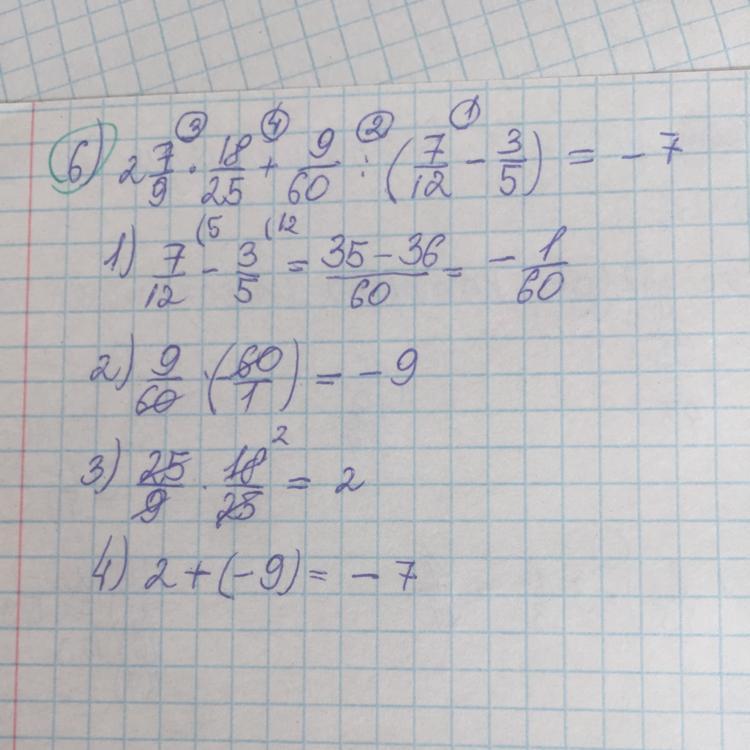 6) 2 7/9 · 18/25 + 9/60 : (7/12 - 3/5) = - 7
③ ④ ② ①
1) 7/12 (5 - 3/5 (12 = 35 - 36/60 = - 1/60
2) 9/60 · (- 60/1) = - 9
3) 25/9 · 18/25 2 = 2
4) 2 + (- 9) = - 7